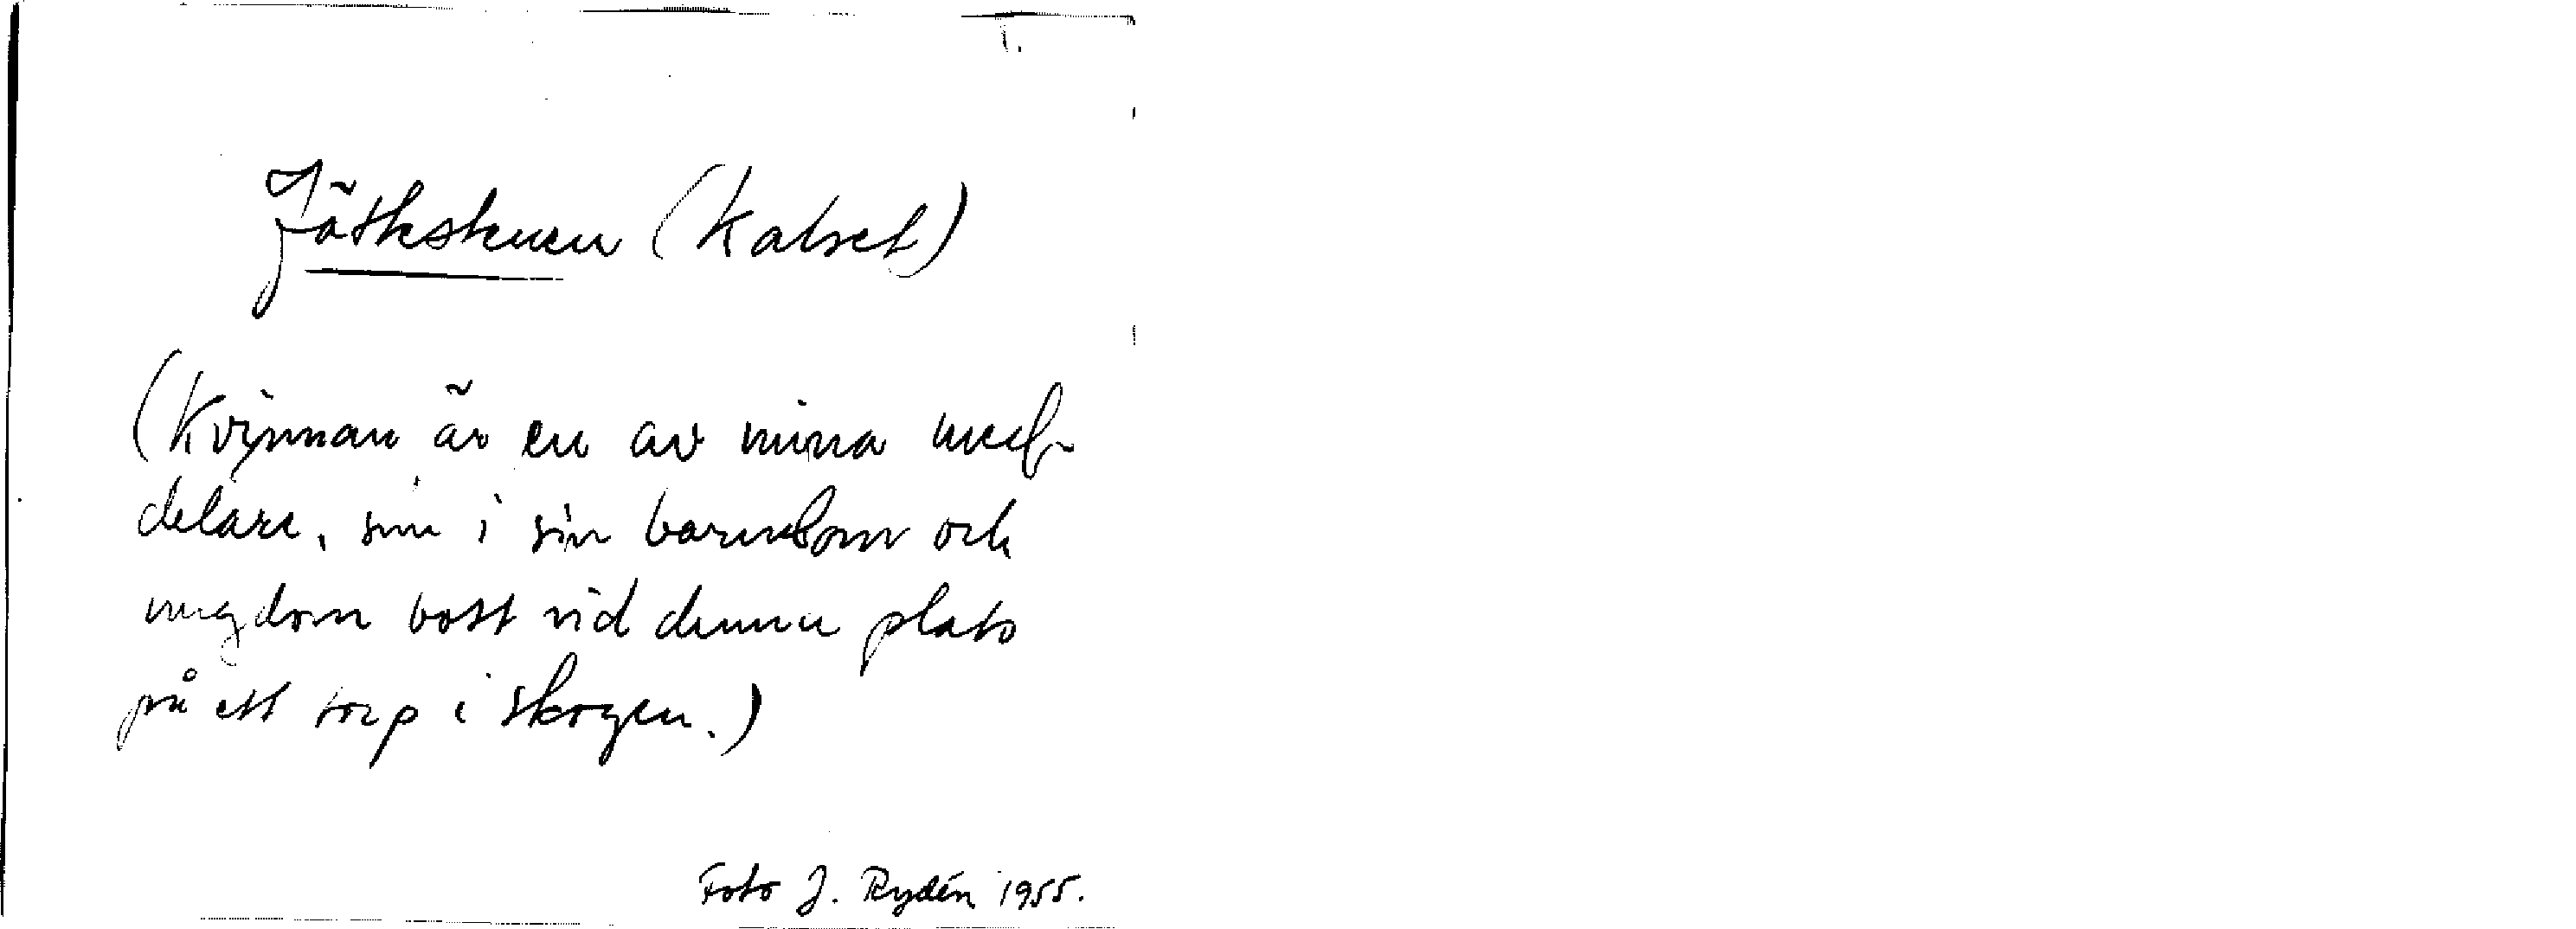 I.
Jätkstenen (Kalset)
(Kvinnan är en av mina med-
delare, som i sin barndom och
ungdom bott vid denna plats
på ett torp i skogen.)
Foto J. Rydén 1955.